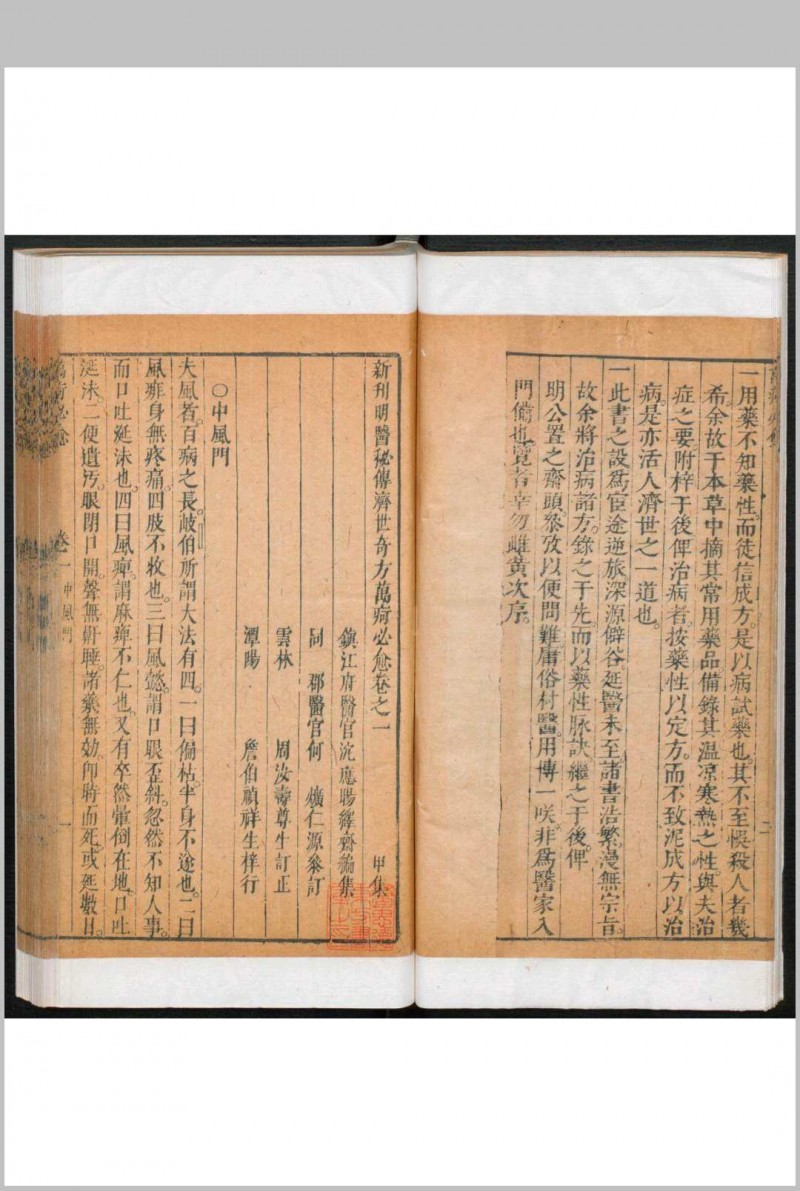 一用藥不知藥性而徒信成方。是以病試藥也。其不至悞殺人者幾
希余故于本草中摘其常用藥品備錄其温凉寒熱之性。與夫治
症之要附梓于後俾治病者。按藥性以定方。而不致泥成方以治
病。是亦活人濟世之一道也。
一此書之設爲宦途逆旅深源僻谷延醫未至。諸書浩繁。漫無宗旨。
故余將治病諸方。錄之于先。而以藥性脉訣。繼之于後。俾
明公置之齋頭。叅攷以便問難。庸俗村醫。用博一咲。非爲醫家入
門備也。覽者幸勿雌黃次序。
二
新刊明醫秘傳濟世奇方萬痾必愈卷之一 甲集
鎮江府醫官沈應暘繹齋編集
同 郡醫官何 爌仁源叅訂
雲林 周汝壽尊生訂正
潭陽 詹伯禎祥生梓行
○中風門
夫風者。百病之長。岐伯所謂大法有四。一曰偏枯。半身不遂也。二曰
風痱身無疼痛。四肢不收也。三曰風懿。謂口眼歪斜。忽然不知人事。
而口吐涎沫也。四曰風痺。謂麻痺不仁也。又有卒然暈倒在地。口吐
涎沫。二便遺汚。眼閉口開。聲無鼾睡。諸藥無効。卽時而死。或延數日。
卷一 中風門 一